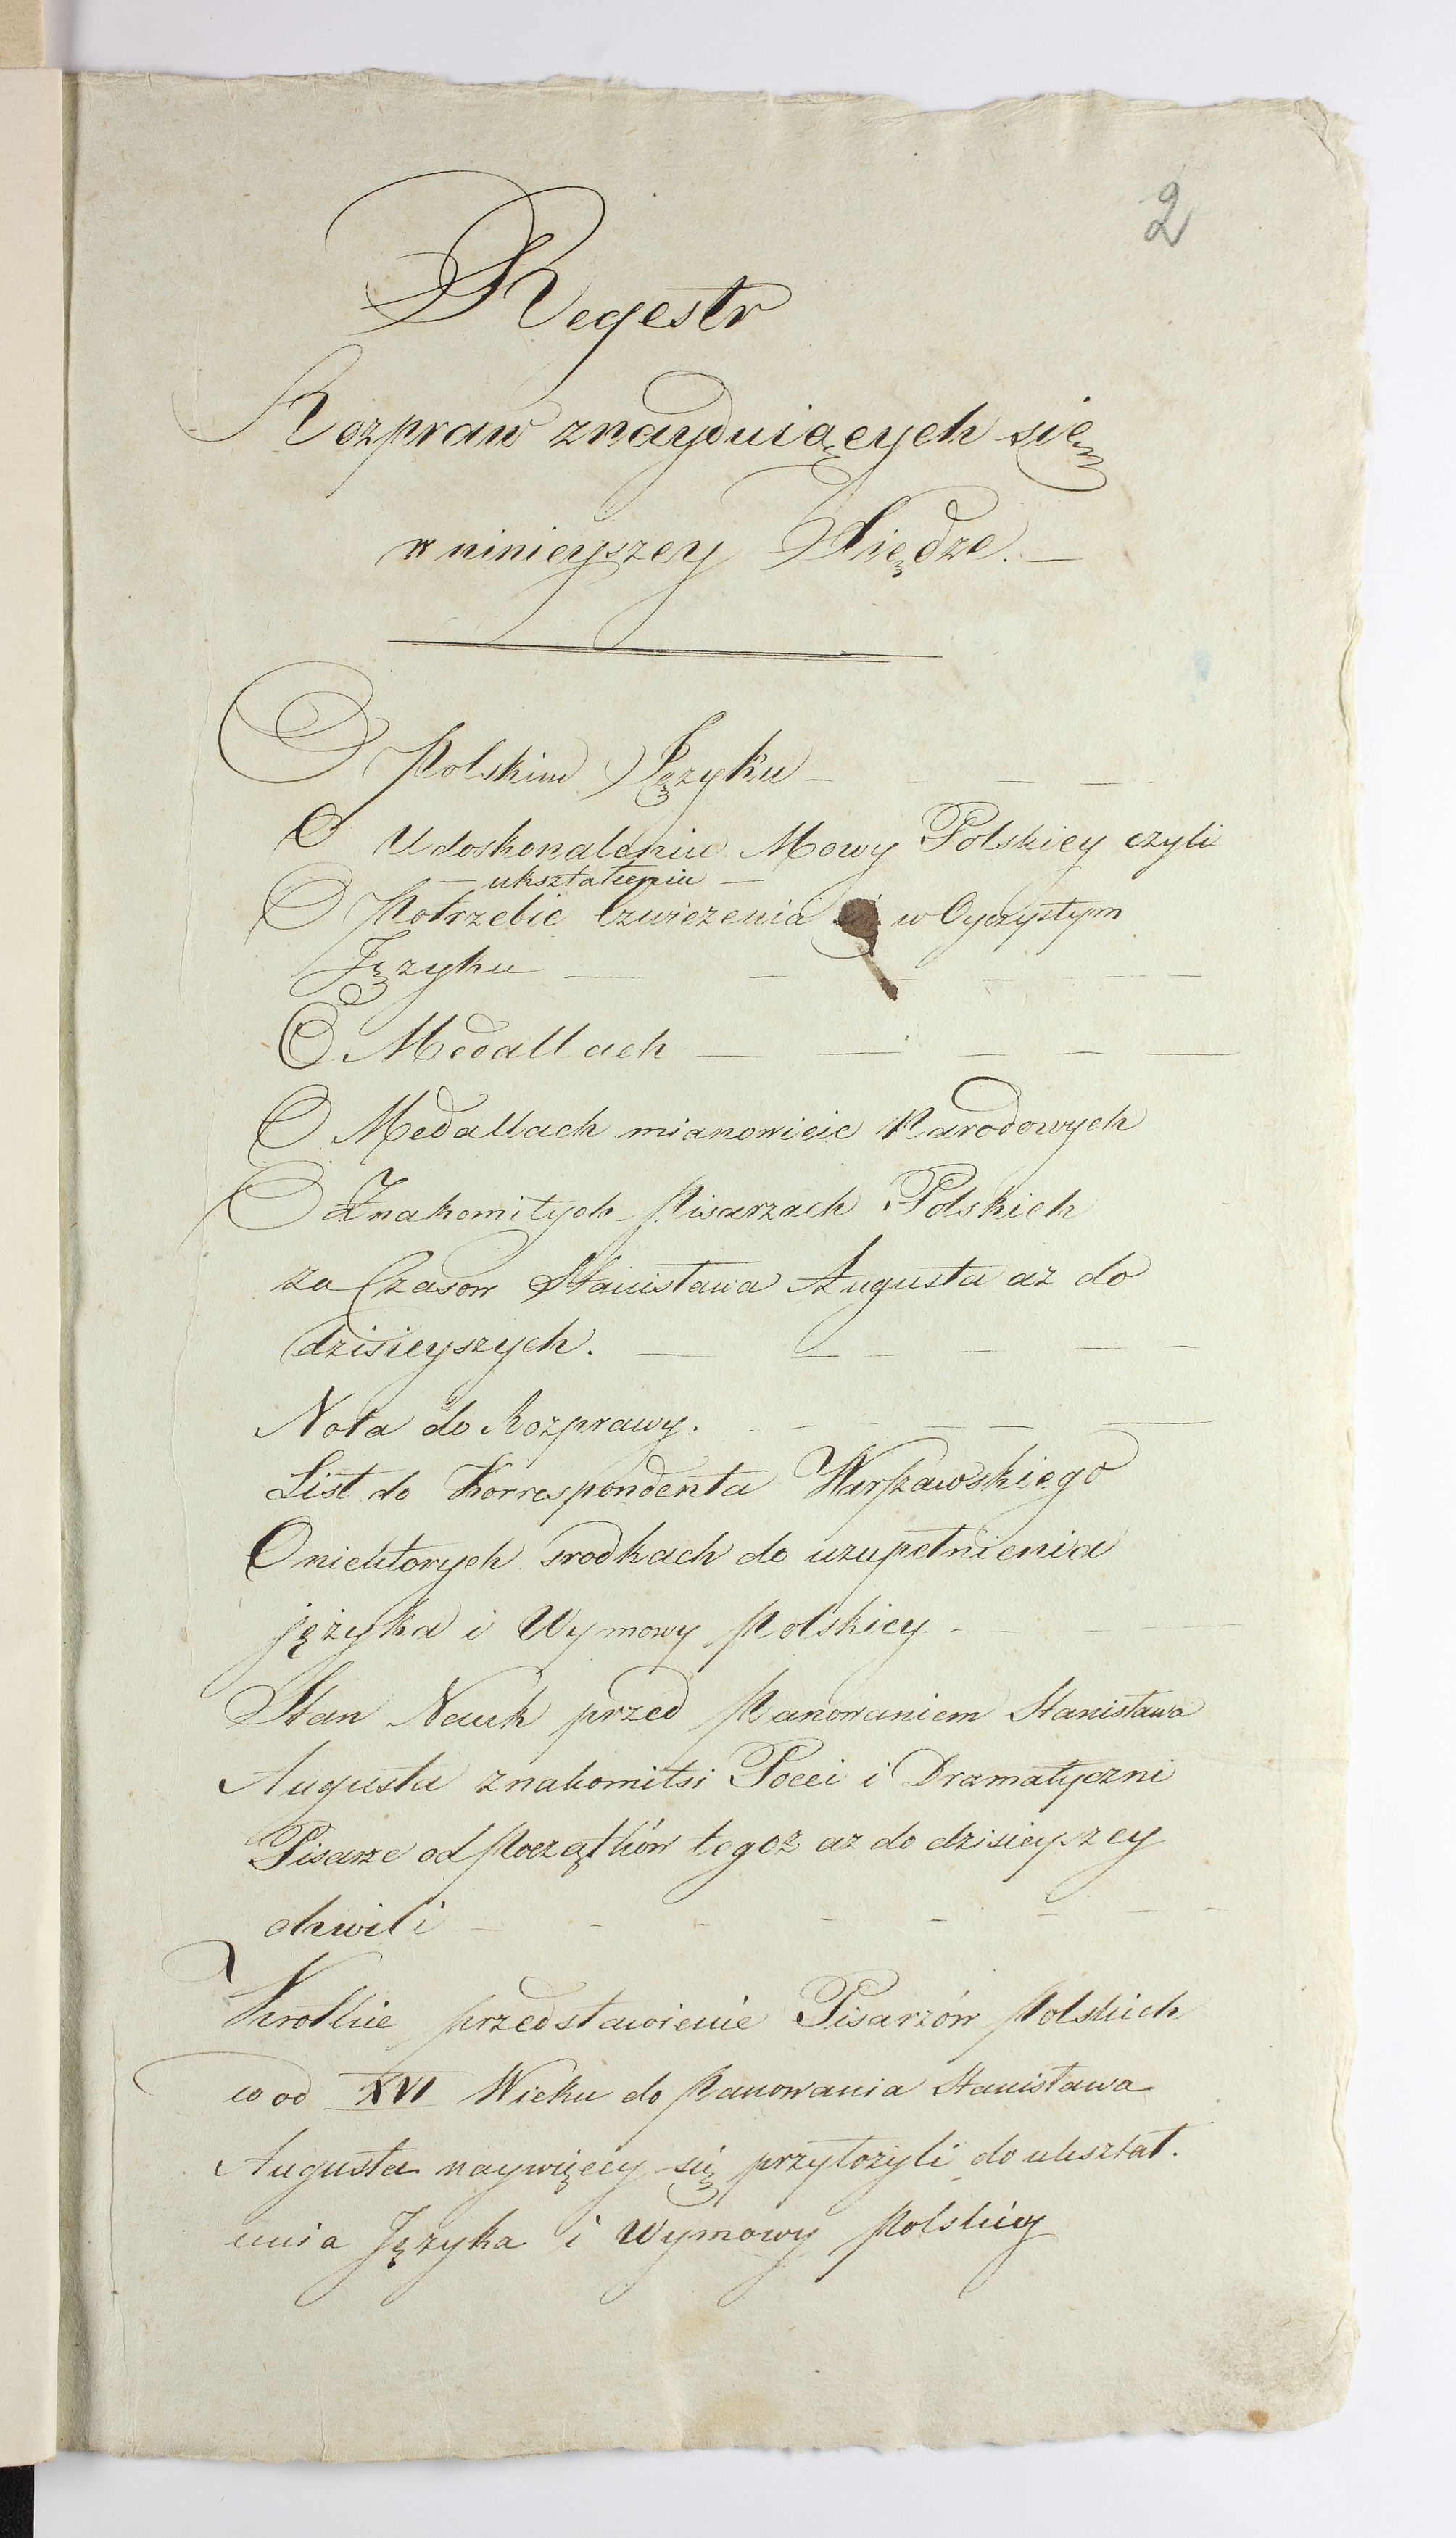 2
Regestr
Rozpraw znayduiących się
w ninieyszey Xiędze. —
O Polskim Języku — — — —
O Udoskonaleniu Mowy Polskiey czyli
— ukształceniu —
O Potrzebie Cwiczenia się w Oyczystym
Języku — — — — — —
O Medallach — — — — —
O Medallach mianowicie Narodowych
O Znakomitych Pisarzach Polskich
za Czasow Stanisława Augusta az do
dzisieyszych. — — — — — —
Nota do Rozprawy. — — — — —
List do Korrespondenta Warszawskiego
O niektorych srodkach do uzupełnienia
języka i Wymowy Polskiey — — — —
Stan Nauk przed Panowaniem Stanisława
Augusta znakomitsi Poeci i Dramatyczni
Pisarze od Początków tegoż az do dzisieyszey
chwili — — — — — — — —
Krotkie przedstawienie Pisarzów Polskich
co od XVI Wieku do Panowania Stanisława
Augusta naywięcey się przyłożyli do ukształ.
cenia Języka i Wymowy Polskiey